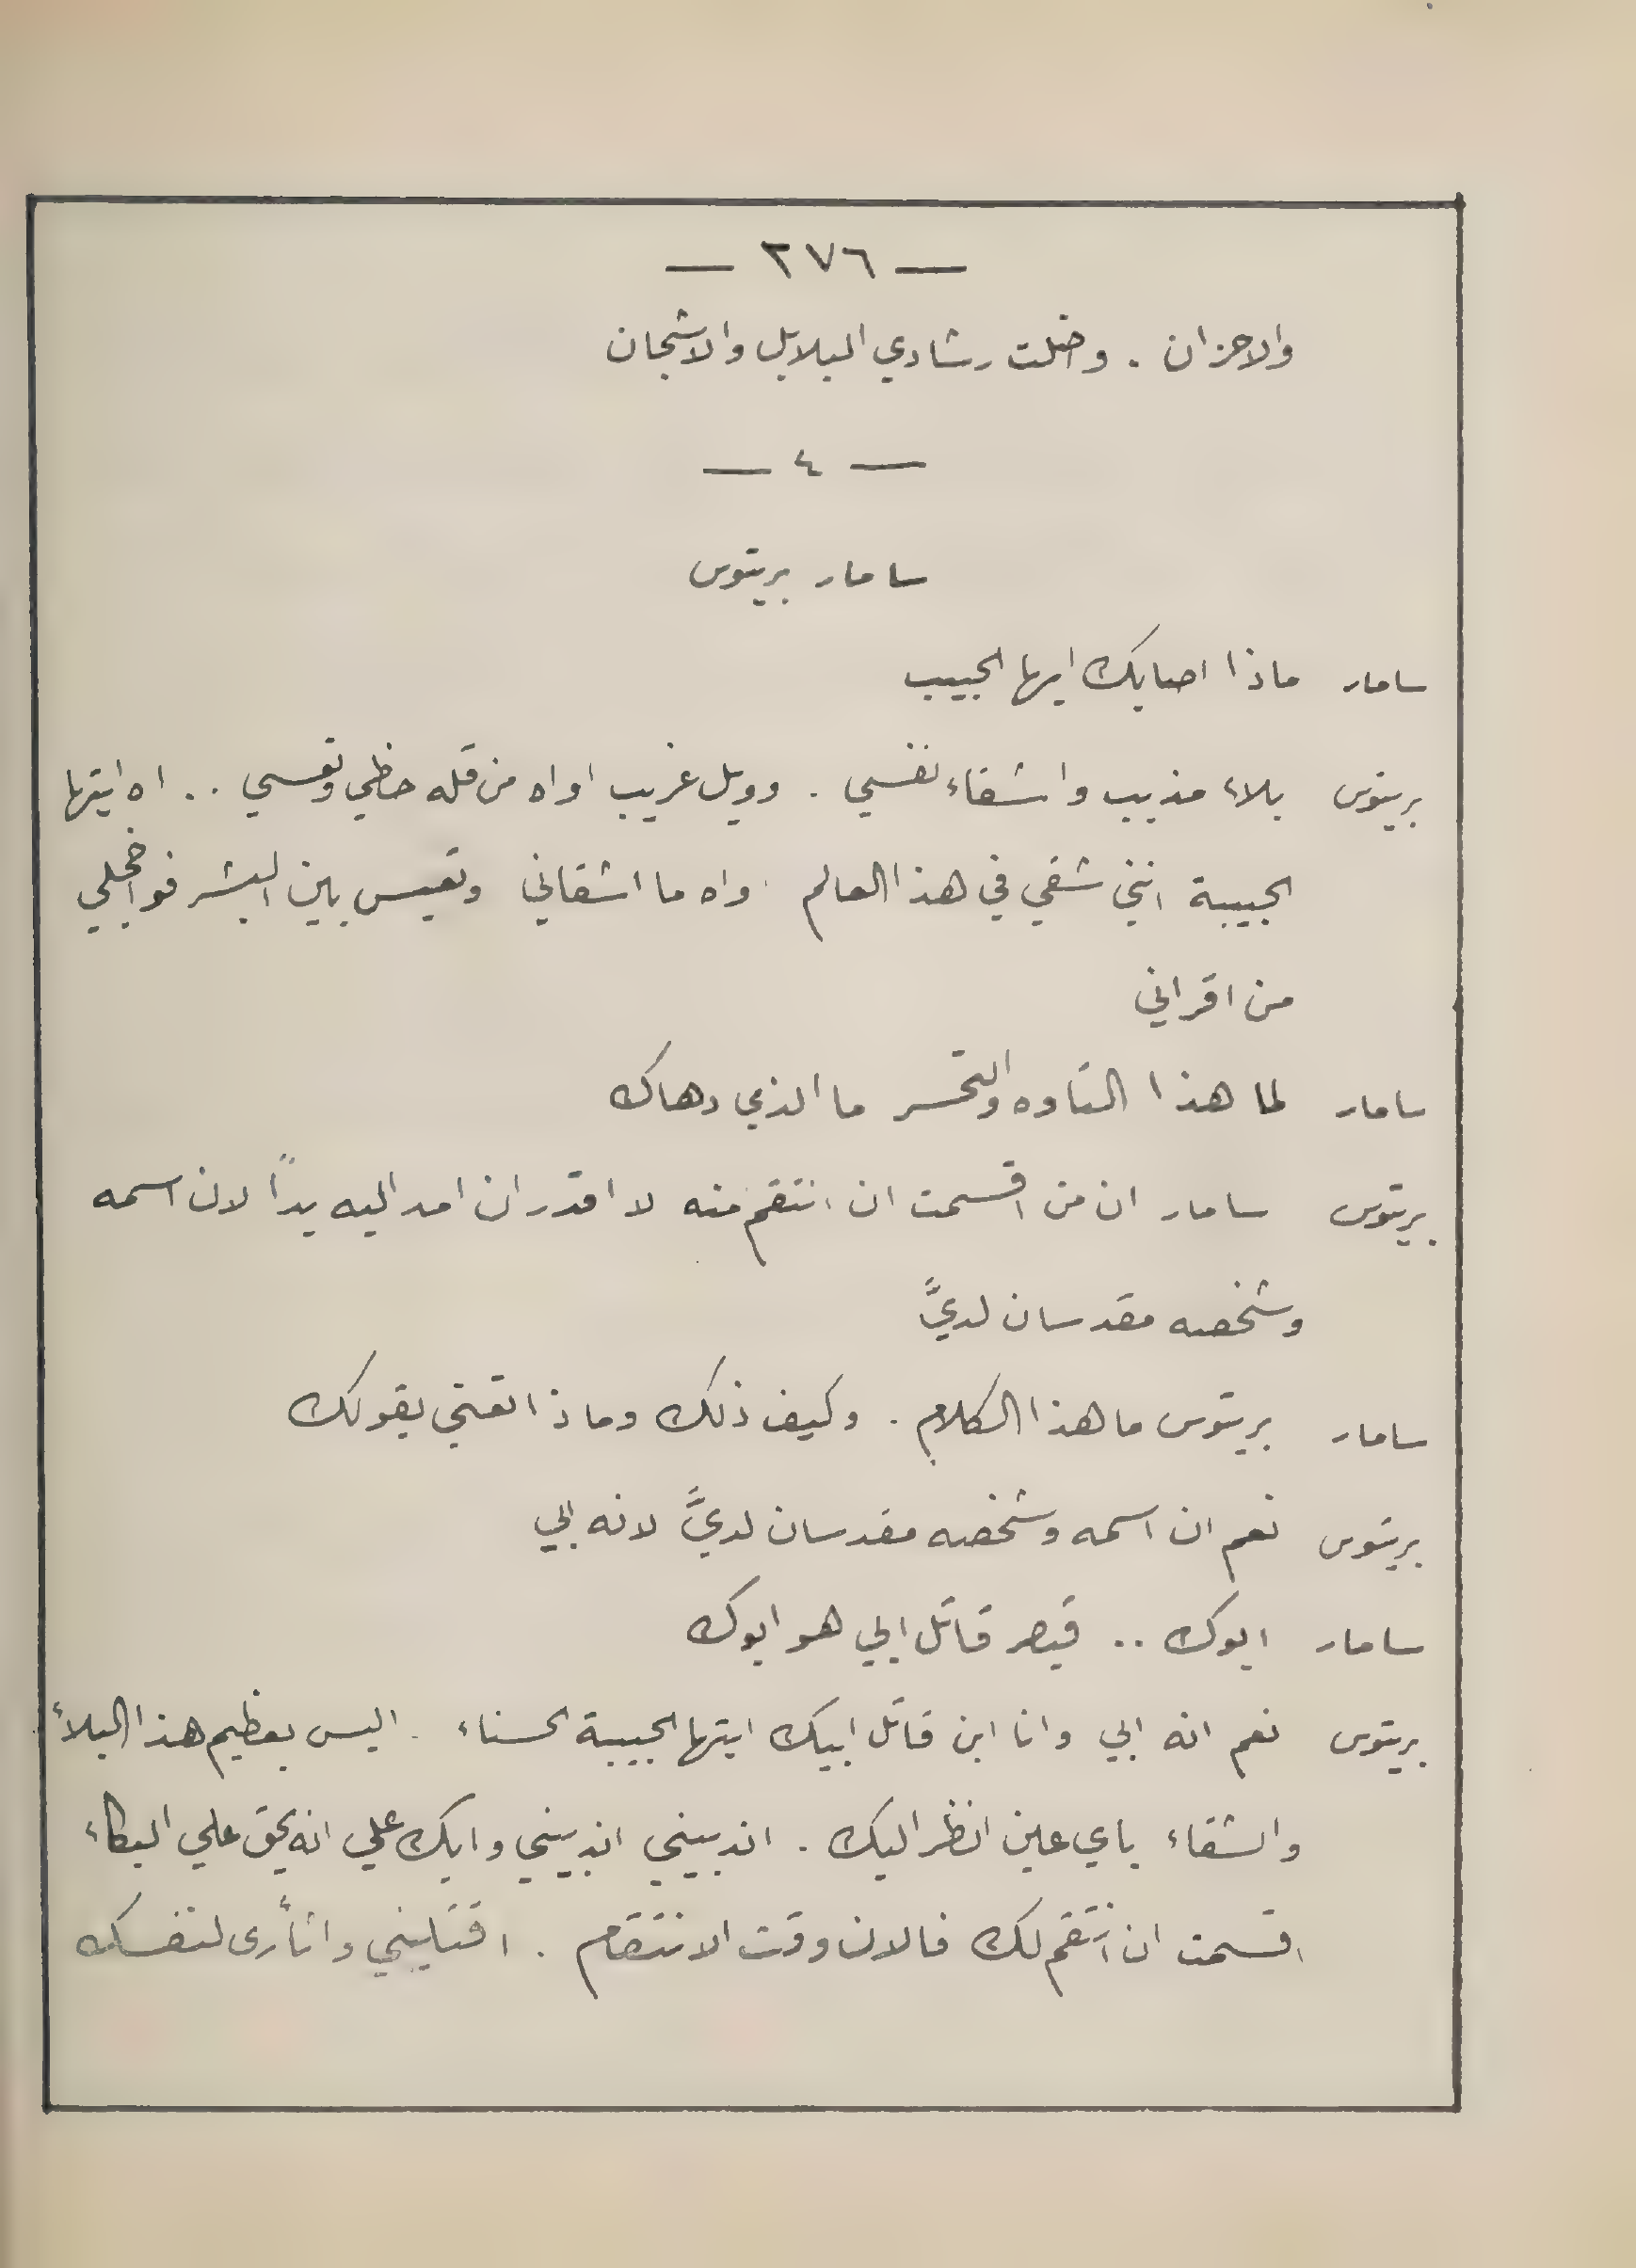 — ٢٧٦ —
والاحزان . واخلت رشادي البلابل والاشجان
— ٤ —
سامار بريتوس
سامار ماذا اصابك ايها الحبيب
بريتوس بلاء مذيب واشقاء نفسي . وويل غريب اواه من قله حظي وتعسي .. اه ايتها
الحبيبة انني شقي في هذا العالم واه ما اشقاني وتعيس بين البشر فواخجلي
من اقراني
سامار لما هذا التاوه والتحسر ما الذي دهاك
بريتوس سامار ان من اقسمت ان انتقم منه لا اقدر ان امد اليه يداً لان اسمه
وشخصه مقدسان لديَّ
سامار بريتوس ما هذا الكلام . وكيف ذلك وماذا تعني بقولك
بريتوس نعم ان اسمه وشخصه مقدسان لديَّ لانه ابي
سامار ابوك .. قيصر قاتل ابي هو ابوك
بريتوس نعم انه ابي وانا ابن قاتل ابيك ايتها الحبيبة الحسناء . اليس بعظيم هذا البلاء
والشقاء باي عين انظر اليك . اندبيني اندبيني وابك علي انه يحق علي البكاء
اقسمت ان انتقم لك فالان وقت الانتقام . اقتليني واثأرى لنفسك